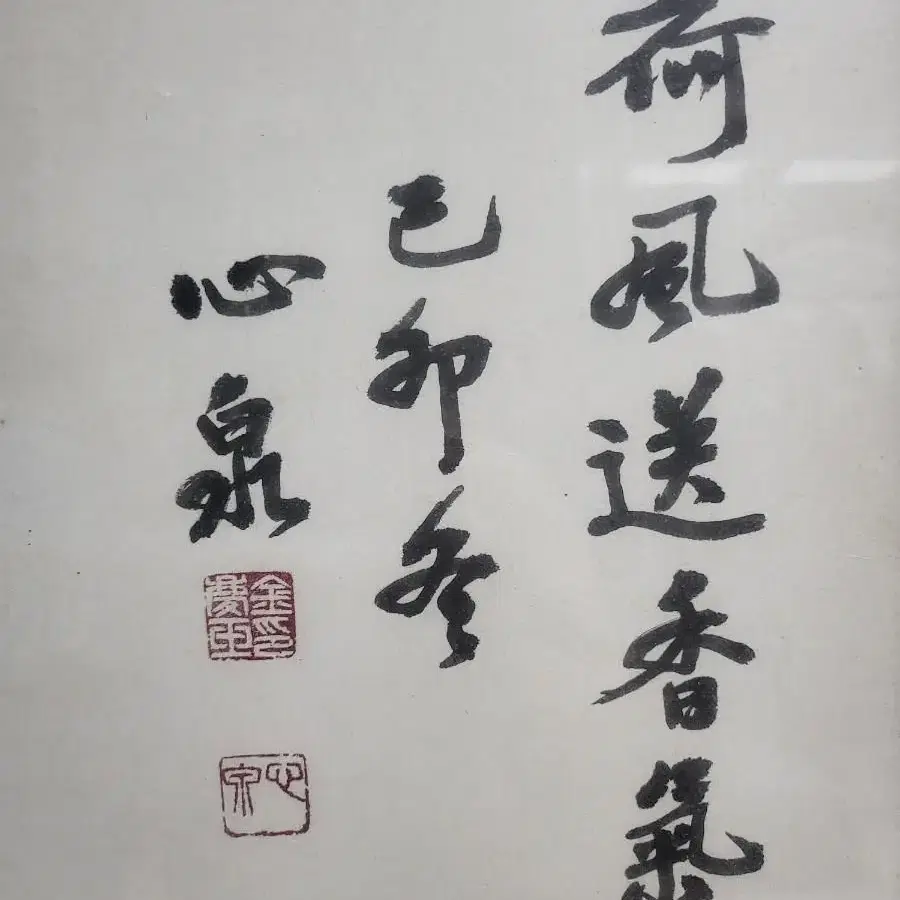 荷風送香氣
己卯冬
心泉
金印慶
心泉